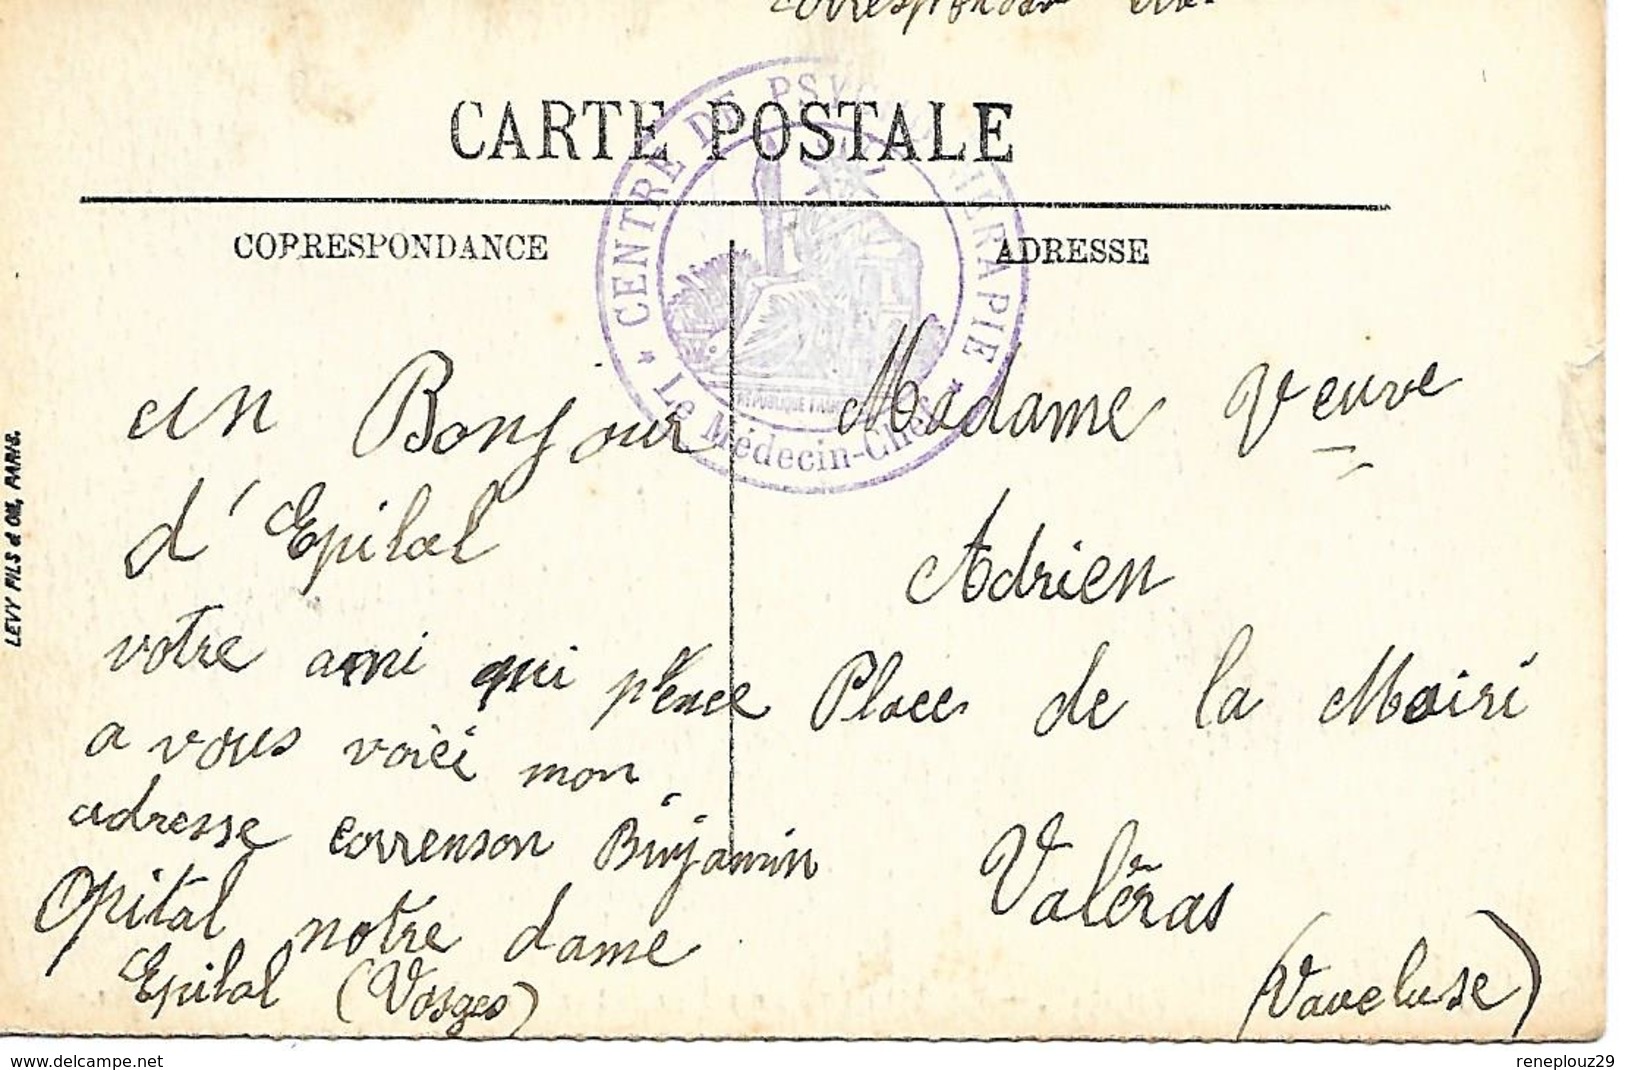 CARTE POSTALE
CENTRE DE PSYCHOTHÉRAPIE
* Le Médecin-Chef *
RÉPUBLIQUE FRAN
CORRESPONDANCE
ADRESSE
un Bonjour
d'Epilal
votre ami qui pence
a vous voici mon
adresse correnson Binjamin
Opital notre dame
Epilal (Vosges)
Madame Veuve
Adrien
Place de la Moiri
Valéras
(Vaucluse)
LEVY FILS & Cie, PARIS.
delcampe.net
reneplouz29